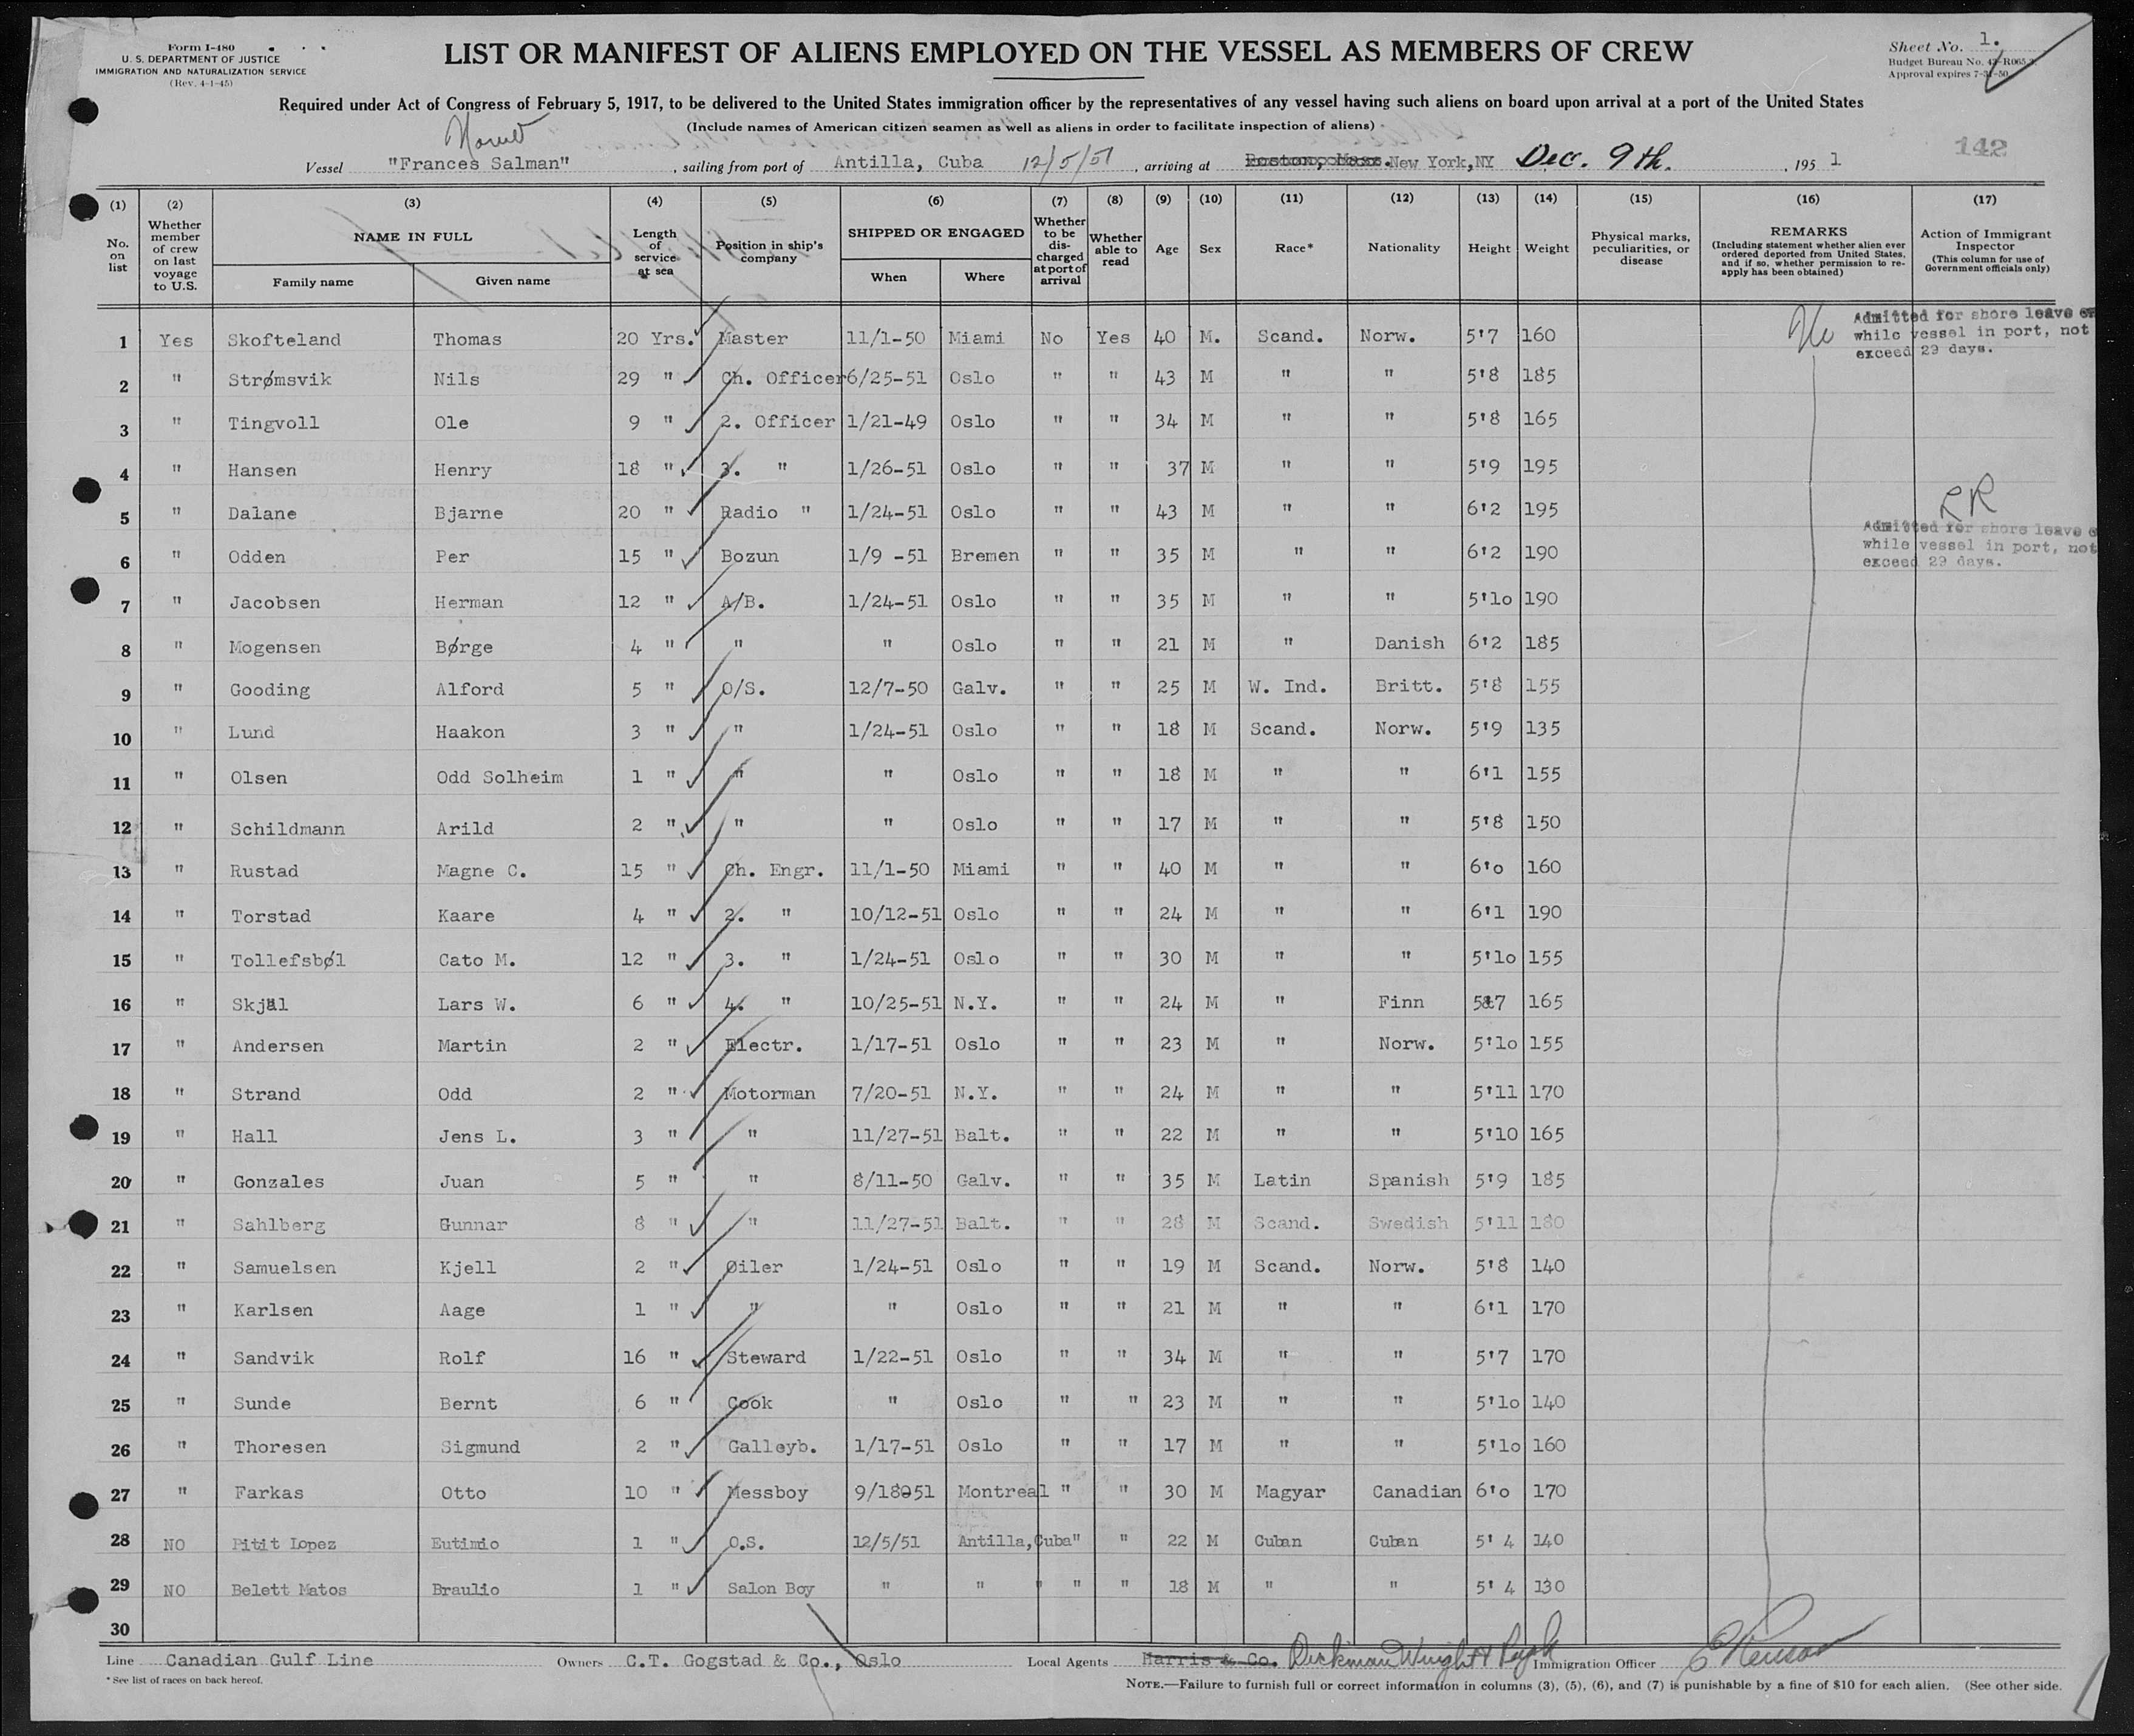 Form I-480
U. S. DEPARTMENT OF JUSTICE
IMMIGRATION AND NATURALIZATION SERVICE
(Rev. 4-1-45)
LIST OR MANIFEST OF ALIENS EMPLOYED ON THE VESSEL AS MEMBERS OF CREW
Sheet No. 1.
Budget Bureau No. 43-R065.2
Approval expires 7-31-50
Required under Act of Congress of February 5, 1917, to be delivered to the United States immigration officer by the representatives of any vessel having such aliens on board upon arrival at a port of the United States
(Include names of American citizen seamen as well as aliens in order to facilitate inspection of aliens)
142
Vessel "Frances Salman", sailing from port of Antilla, Cuba 12/5/51, arriving at Boston, Mass. New York,NY Dec. 9th., 1951
(1) No. on list
(2) Whether member of crew on last voyage to U.S.
(3) NAME IN FULL Family name Given name
(4) Length of service at sea
(5) Position in ship's company
(6) SHIPPED OR ENGAGED When Where
(7) Whether to be discharged at port of arrival
(8) Whether able to read
(9) Age
(10) Sex
(11) Race*
(12) Nationality
(13) Height
(14) Weight
(15) Physical marks, peculiarities, or disease
(16) REMARKS (Including statement whether alien ever ordered deported from United States, and if so, whether permission to reapply has been obtained)
(17) Action of Immigrant Inspector (This column for use of Government officials only)
1 Yes Skofteland Thomas 20 Yrs. Master 11/1-50 Miami No Yes 40 M. Scand. Norw. 5'7 160
Admitted for shore leave
while vessel in port, not
exceed 29 days.
2 " Strømsvik Nils 29 " Ch. Officer 6/25-51 Oslo " " 43 M " " 5'8 185
3 " Tingvoll Ole 9 " 2. Officer 1/21-49 Oslo " " 34 M " " 5'8 165
4 " Hansen Henry 18 " 3. " 1/26-51 Oslo " " 37 M " " 5'9 195
5 " Dalane Bjarne 20 " Radio " 1/24-51 Oslo " " 43 M " " 6'2 195
RR
Admitted for shore leave
while vessel in port, not
exceed 29 days.
6 " Odden Per 15 " Bozun 1/9 -51 Bremen " " 35 M " " 6'2 190
7 " Jacobsen Herman 12 " A/B. 1/24-51 Oslo " " 35 M " " 5'lo 190
8 " Mogensen Børge 4 " " " Oslo " " 21 M " Danish 6'2 185
9 " Gooding Alford 5 " O/S. 12/7-50 Galv. " " 25 M W. Ind. Britt. 5'8 155
10 " Lund Haakon 3 " " 1/24-51 Oslo " " 18 M Scand. Norw. 5'9 135
11 " Olsen Odd Solheim 1 " " " Oslo " " 18 M " " 6'1 155
12 " Schildmann Arild 2 " " " Oslo " " 17 M " " 5'8 150
13 " Rustad Magne C. 15 " Ch. Engr. 11/1-50 Miami " " 40 M " " 6'o 160
14 " Torstad Kaare 4 " 2. " 10/12-51 Oslo " " 24 M " " 6'1 190
15 " Tollefsbøl Cato M. 12 " 3. " 1/24-51 Oslo " " 30 M " " 5'lo 155
16 " Skjäl Lars W. 6 " 4. " 10/25-51 N.Y. " " 24 M " Finn 5'7 165
17 " Andersen Martin 2 " Electr. 1/17-51 Oslo " " 23 M " Norw. 5'lo 155
18 " Strand Odd 2 " Motorman 7/20-51 N.Y. " " 24 M " " 5'11 170
19 " Hall Jens L. 3 " " 11/27-51 Balt. " " 22 M " " 5'10 165
20 " Gonzales Juan 5 " " 8/11-50 Galv. " " 35 M Latin Spanish 5'9 185
21 " Sahlberg Gunnar 8 " " 11/27-51 Balt. " " 28 M Scand. Swedish 5'11 180
22 " Samuelsen Kjell 2 " Oiler 1/24-51 Oslo " " 19 M Scand. Norw. 5'8 140
23 " Karlsen Aage 1 " " " Oslo " " 21 M " " 6'1 170
24 " Sandvik Rolf 16 " Steward 1/22-51 Oslo " " 34 M " " 5'7 170
25 " Sunde Bernt 6 " Cook " Oslo " " 23 M " " 5'lo 140
26 " Thoresen Sigmund 2 " Galleyb. 1/17-51 Oslo " " 17 M " " 5'lo 160
27 " Farkas Otto 10 " Messboy 9/18-51 Montreal " " 30 M Magyar Canadian 6'o 170
28 NO Pitit Lopez Eutimio 1 " O.S. 12/5/51 Antilla,Cuba " " 22 M Cuban Cuban 5' 4 140
29 NO Belett Matos Braulio 1 " Salon Boy " " " " " 18 M " " 5' 4 130
30
Line Canadian Gulf Line Owners C.T. Gogstad & Co., Oslo Local Agents Harris & Co. Dickman Wright & Pugh Immigration Officer
* See list of races on back hereof.
NOTE.—Failure to furnish full or correct information in columns (3), (5), (6), and (7) is punishable by a fine of $10 for each alien. (See other side.